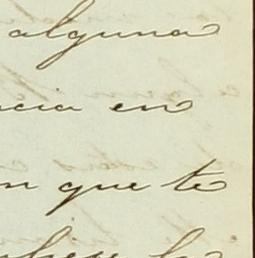 alguna
cia en
n que te